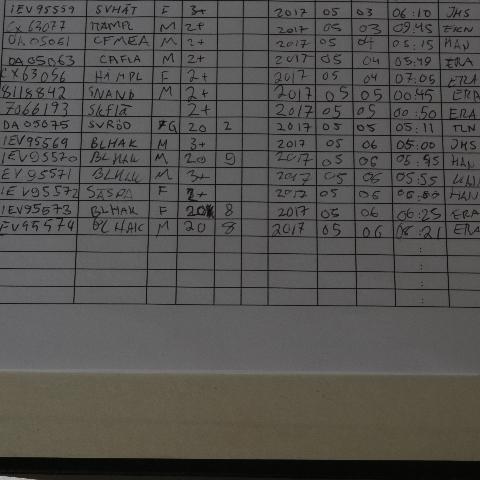 1EV95559 SVHÄT F 3+ 2017 05 03 06:10 JHS
CX63077 HAMPL M 2+ 2017 05 03 09:45 EKN
DA05061 CFMEA M 2+ 2017 05 04 05:15 HAN
DA05063 CAFLA M 2+ 2017 05 04 05:49 ERA
CX63056 HAMPL F 2+ 2017 05 04 07:05 ERA
8118842 SNAND M 2+ 2017 05 05 00:45 ERA
7066193 SKFLÄ 2+ 2017 05 05 00:50 ERA
DA05075 SVRÖD FG 20 2 2017 05 05 05:11 TLN
1EV95569 BLHAK M 3+ 2017 05 06 05:00 JHS
1EV95570 BLHAK M 20 9 2017 05 06 05:45 HAN
1EV95571 BLHAK M 3+ 2017 05 06 05:55
1EV95572 F 2+ 2017 05 06 HAN
1EV95573 BLHAK F 20 8 2017 05 06 06:25 ERA
EV95574 BLHAK M 20 8 2017 05 06 08:21 ERA